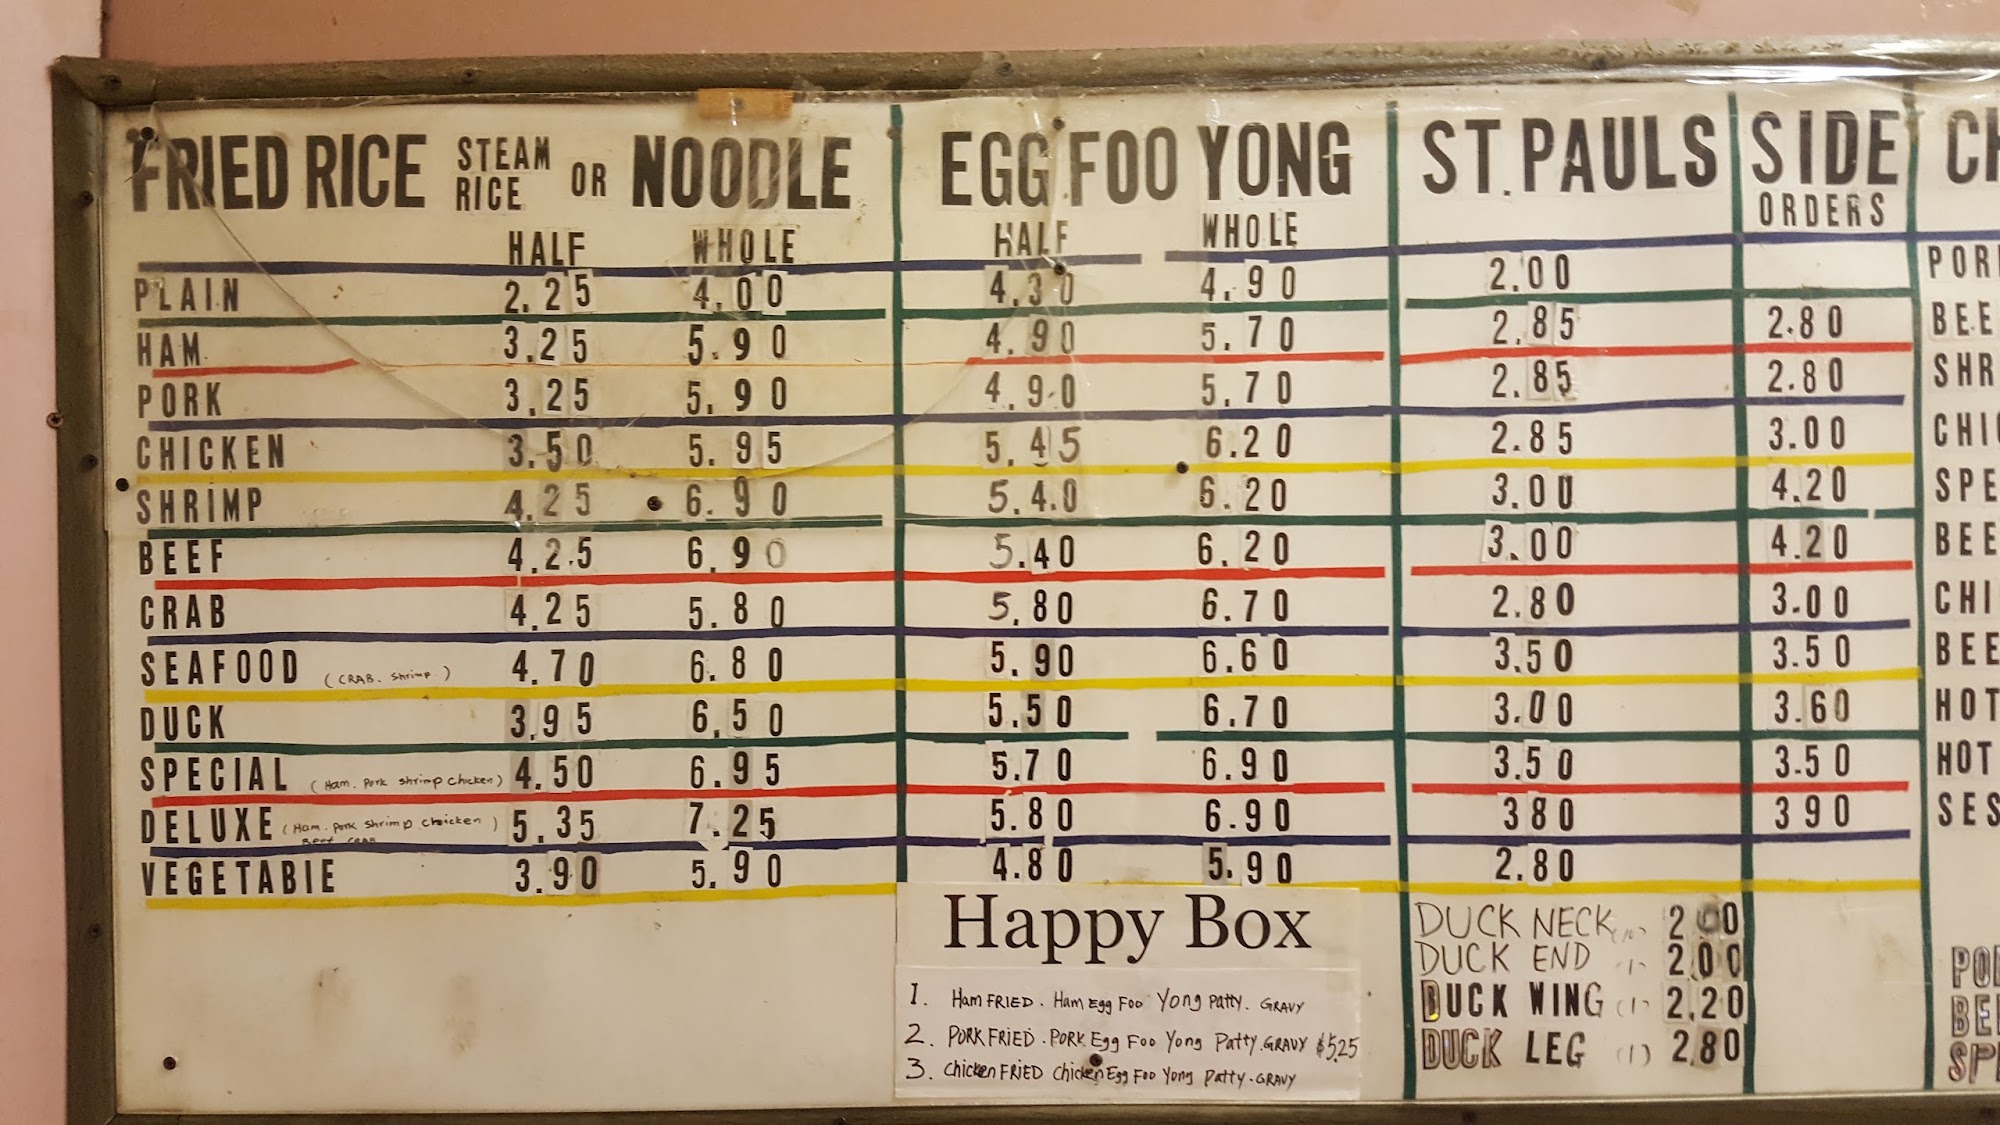 FRIED RICE STEAM RICE OR NOODLE EGG FOO YONG ST. PAULS SIDE ORDERS
HALF WHOLE HALF WHOLE
PLAIN 2.25 4.00 4.30 4.90 2.00
HAM 3.25 5.90 4.90 5.70 2.85 2.80
PORK 3.25 5.90 4.90 5.70 2.85 2.80
CHICKEN 3.50 5.95 5.45 6.20 2.85 3.00
SHRIMP 4.25 6.90 5.40 6.20 3.00 4.20
BEEF 4.25 6.90 5.40 6.20 3.00 4.20
CRAB 4.25 5.80 5.80 6.70 2.80 3.00
SEAFOOD (CRAB. Shrimp) 4.70 6.80 5.90 6.60 3.50 3.50
DUCK 3.95 6.50 5.50 6.70 3.00 3.60
SPECIAL (Ham. Pork shrimp chicken) 4.50 6.95 5.70 6.90 3.50 3.50
DELUXE (Ham. Pork Shrimp chicken) 5.35 7.25 5.80 6.90 380 390
Beef CRAB
VEGETABIE 3.90 5.90 4.80 5.90 2.80
Happy Box
1. Ham FRIED. Ham Egg Foo Yong patty. GRAVY
2. PORK FRIED. PORK Egg Foo Yong Patty. GRAVY $5.25
3. chicken FRIED chicken Egg Foo Yong patty. GRAVY
DUCK NECK 2.00
DUCK END (1) 2.00
DUCK WING (1) 2.20
DUCK LEG (1) 2.80
POR
BEE
SHR
CHI
SPE
BEE
CHI
BEE
HOT
HOT
SES